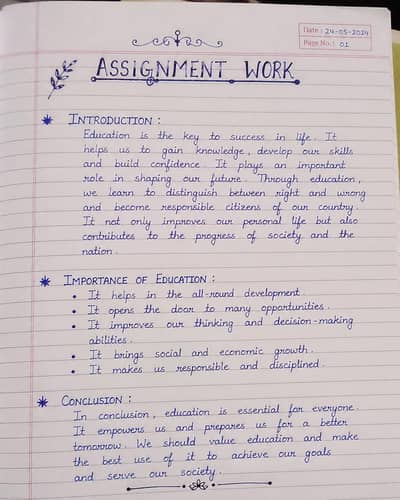 Date : 24-05-2024
Page No. : 01
ASSIGNMENT WORK
INTRODUCTION :
Education is the key to success in life. It
helps us to gain knowledge, develop our skills
and build confidence. It plays an important
role in shaping our future. Through education,
we learn to distinguish between right and wrong
and become responsible citizens of our country.
It not only improves our personal life but also
contributes to the progress of society and the
nation.
IMPORTANCE OF EDUCATION :
• It helps in the all-round development.
• It opens the door to many opportunities.
• It improves our thinking and decision-making
abilities.
• It brings social and economic growth.
• It makes us responsible and disciplined.
CONCLUSION :
In conclusion, education is essential for everyone.
It empowers us and prepares us for a better
tomorrow. We should value education and make
the best use of it to achieve our goals
and serve our society.